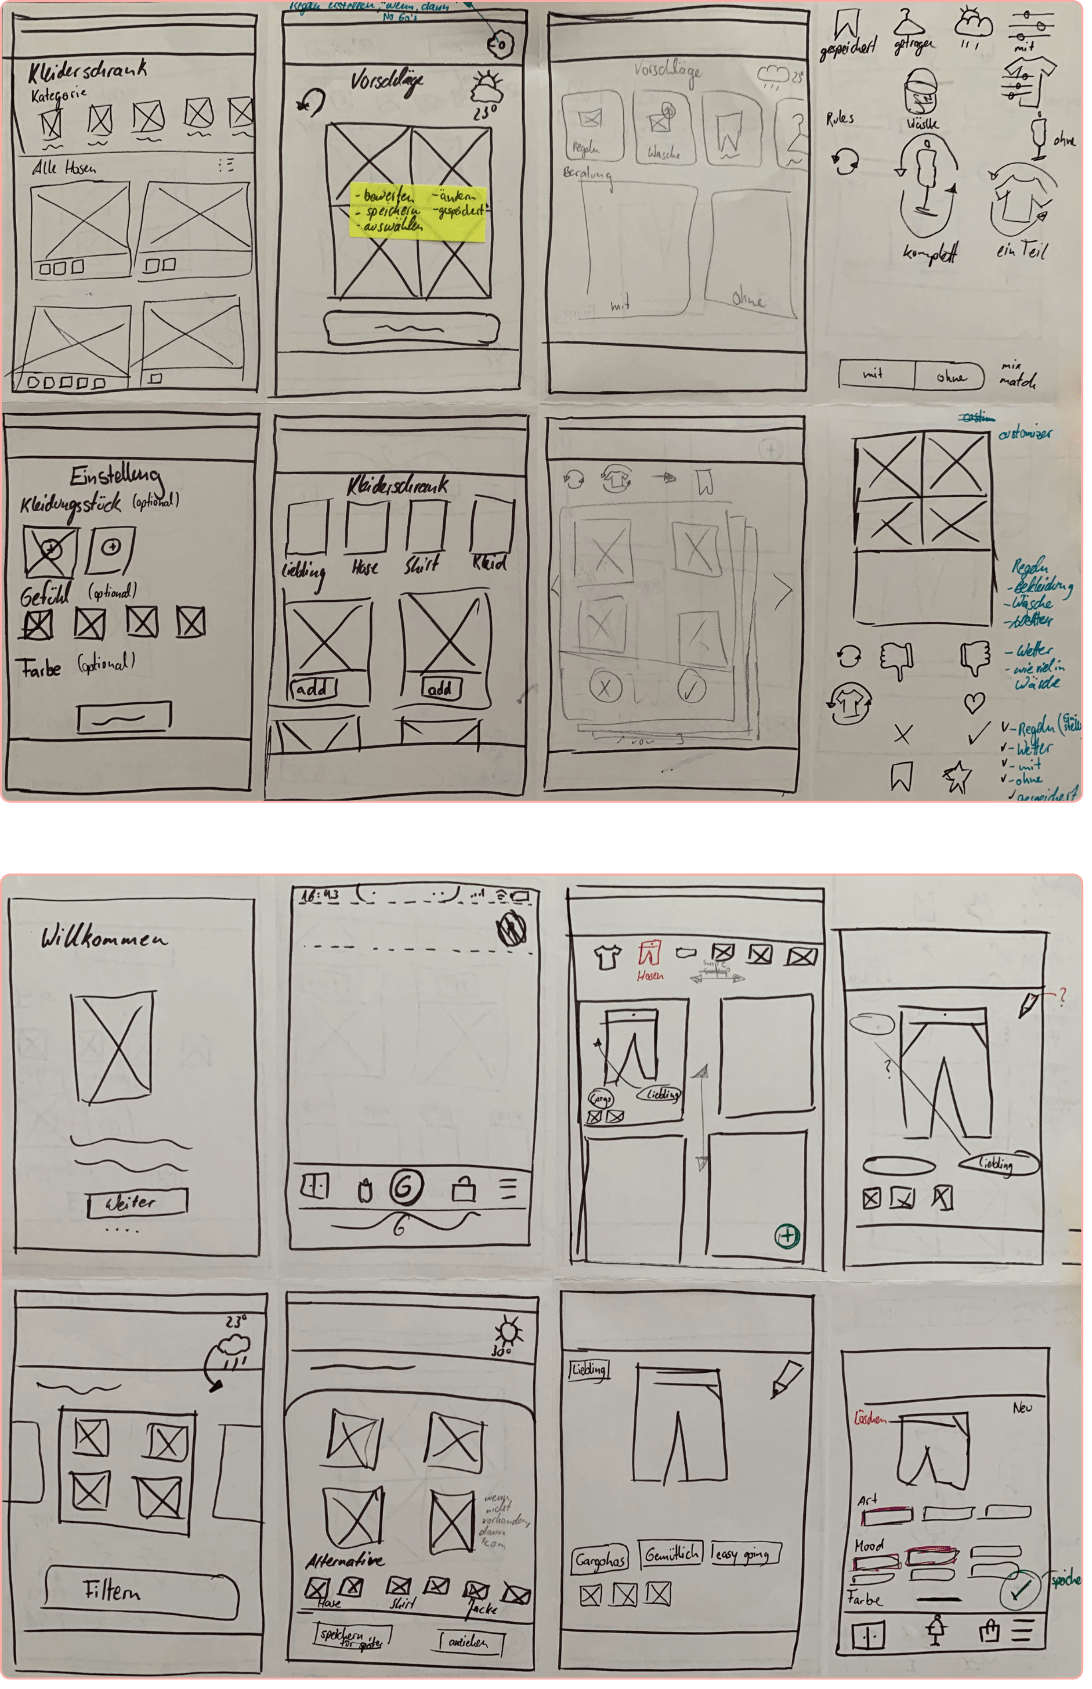 Regeln erstellen, "wenn, dann"
No Go's
Kleiderschrank
Kategorie
Alle Hosen
Vorschläge
23°
- bewerten
- speichern
- auswählen
- ändern
- gespeichert
Vorschläge
23°
Regeln
Wäsche
Beratung
mit
ohne
gespeichert
getragen
mit
Rules
Wäsche
ohne
komplett
ein Teil
mit
ohne
mix
match
Einstellung
Kleidungsstück (optional)
Gefühl (optional)
Farbe (optional)
Kleiderschrank
Liebling
Hose
Shirt
Kleid
add
add
1 von 3
customizer
Regeln
- Bekleidung
- Wäsche
- Wetter
- Wetter
- wie viel in
Wäsche
- Regeln
- Wetter
- mit
- ohne
gespeichert
Willkommen
Weiter
16:43
G
G
Hosen
Cargo
Liebling
?
?
Liebling
23°
Filtern
30°
wenn
nicht
vorhanden,
dann
Alternative
Hose
Shirt
Jacke
speichern
für später
anziehen
Liebling
Cargohos
Gemütlich
easy going
Neu
Löschen
Art
Mood
Farbe